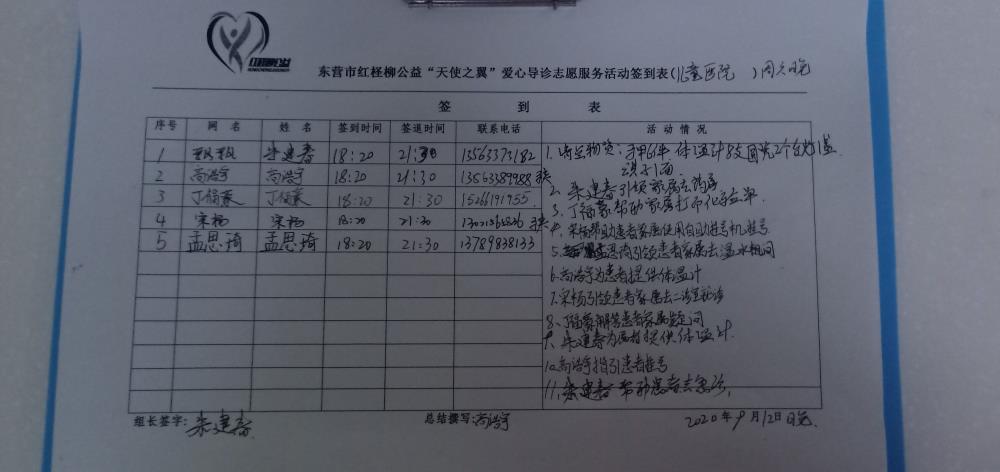 红柽柳公益
东营市红柽柳公益“天使之翼”爱心导诊志愿服务活动签到表(儿童医院 )周六晚
签 到 表
序号 网 名 姓 名 签到时间 签退时间 联系电话 活 动 情 况
1 朱建春 18:20 21:30 13563373182
2 高浩宇 高浩宇 18:20 21:30 13563389988
3 丁福豪 丁福豪 18:20 21:30 1526191955
4 宋杨 宋杨 18:20 21:30
5 孟思琦 孟思琦 18:20 21:30 13789838133
1.
2. 朱建春引领家属去
3. 丁福豪帮助家属打印化验单
4. 宋杨帮助患者家属使用自助挂号机挂号
5. 孟思琦引领患者家属去温水机间
6. 高浩宇为患者提供体温计
7. 宋杨引领患者家属去二诊室就诊
8. 丁福豪解答患者家属疑问
9. 朱建春为患者提供体温计
10. 高浩宇指引患者挂号
11. 朱建春帮助患者去急诊
组长签字: 朱建春 总结撰写:高浩宇 2020年9月12日晚